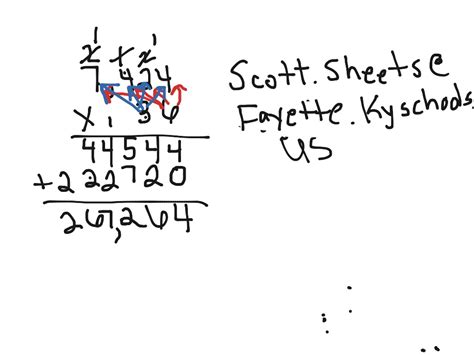 1 1
7424
X 36
44544
+222720
267,264
Scott.Sheets@
Fayette.Kyschools.
US